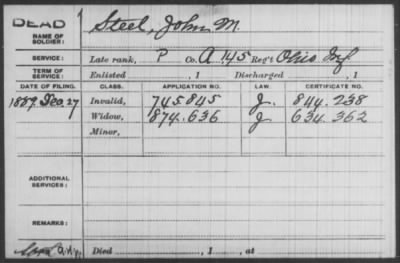 DEAD
NAME OF SOLDIER: Steel, John M.
SERVICE: Late rank, P Co. A 145 Reg't Ohio Inf
TERM OF SERVICE: Enlisted , 1 Discharged , 1
DATE OF FILING. CLASS. APPLICATION NO. LAW. CERTIFICATE NO.
1889. Dec. 27 Invalid, 745.845 J. 844.238
Widow, 874.636 J. 634.362
Minor,
ADDITIONAL SERVICES:
REMARKS:
Died , 1 , at